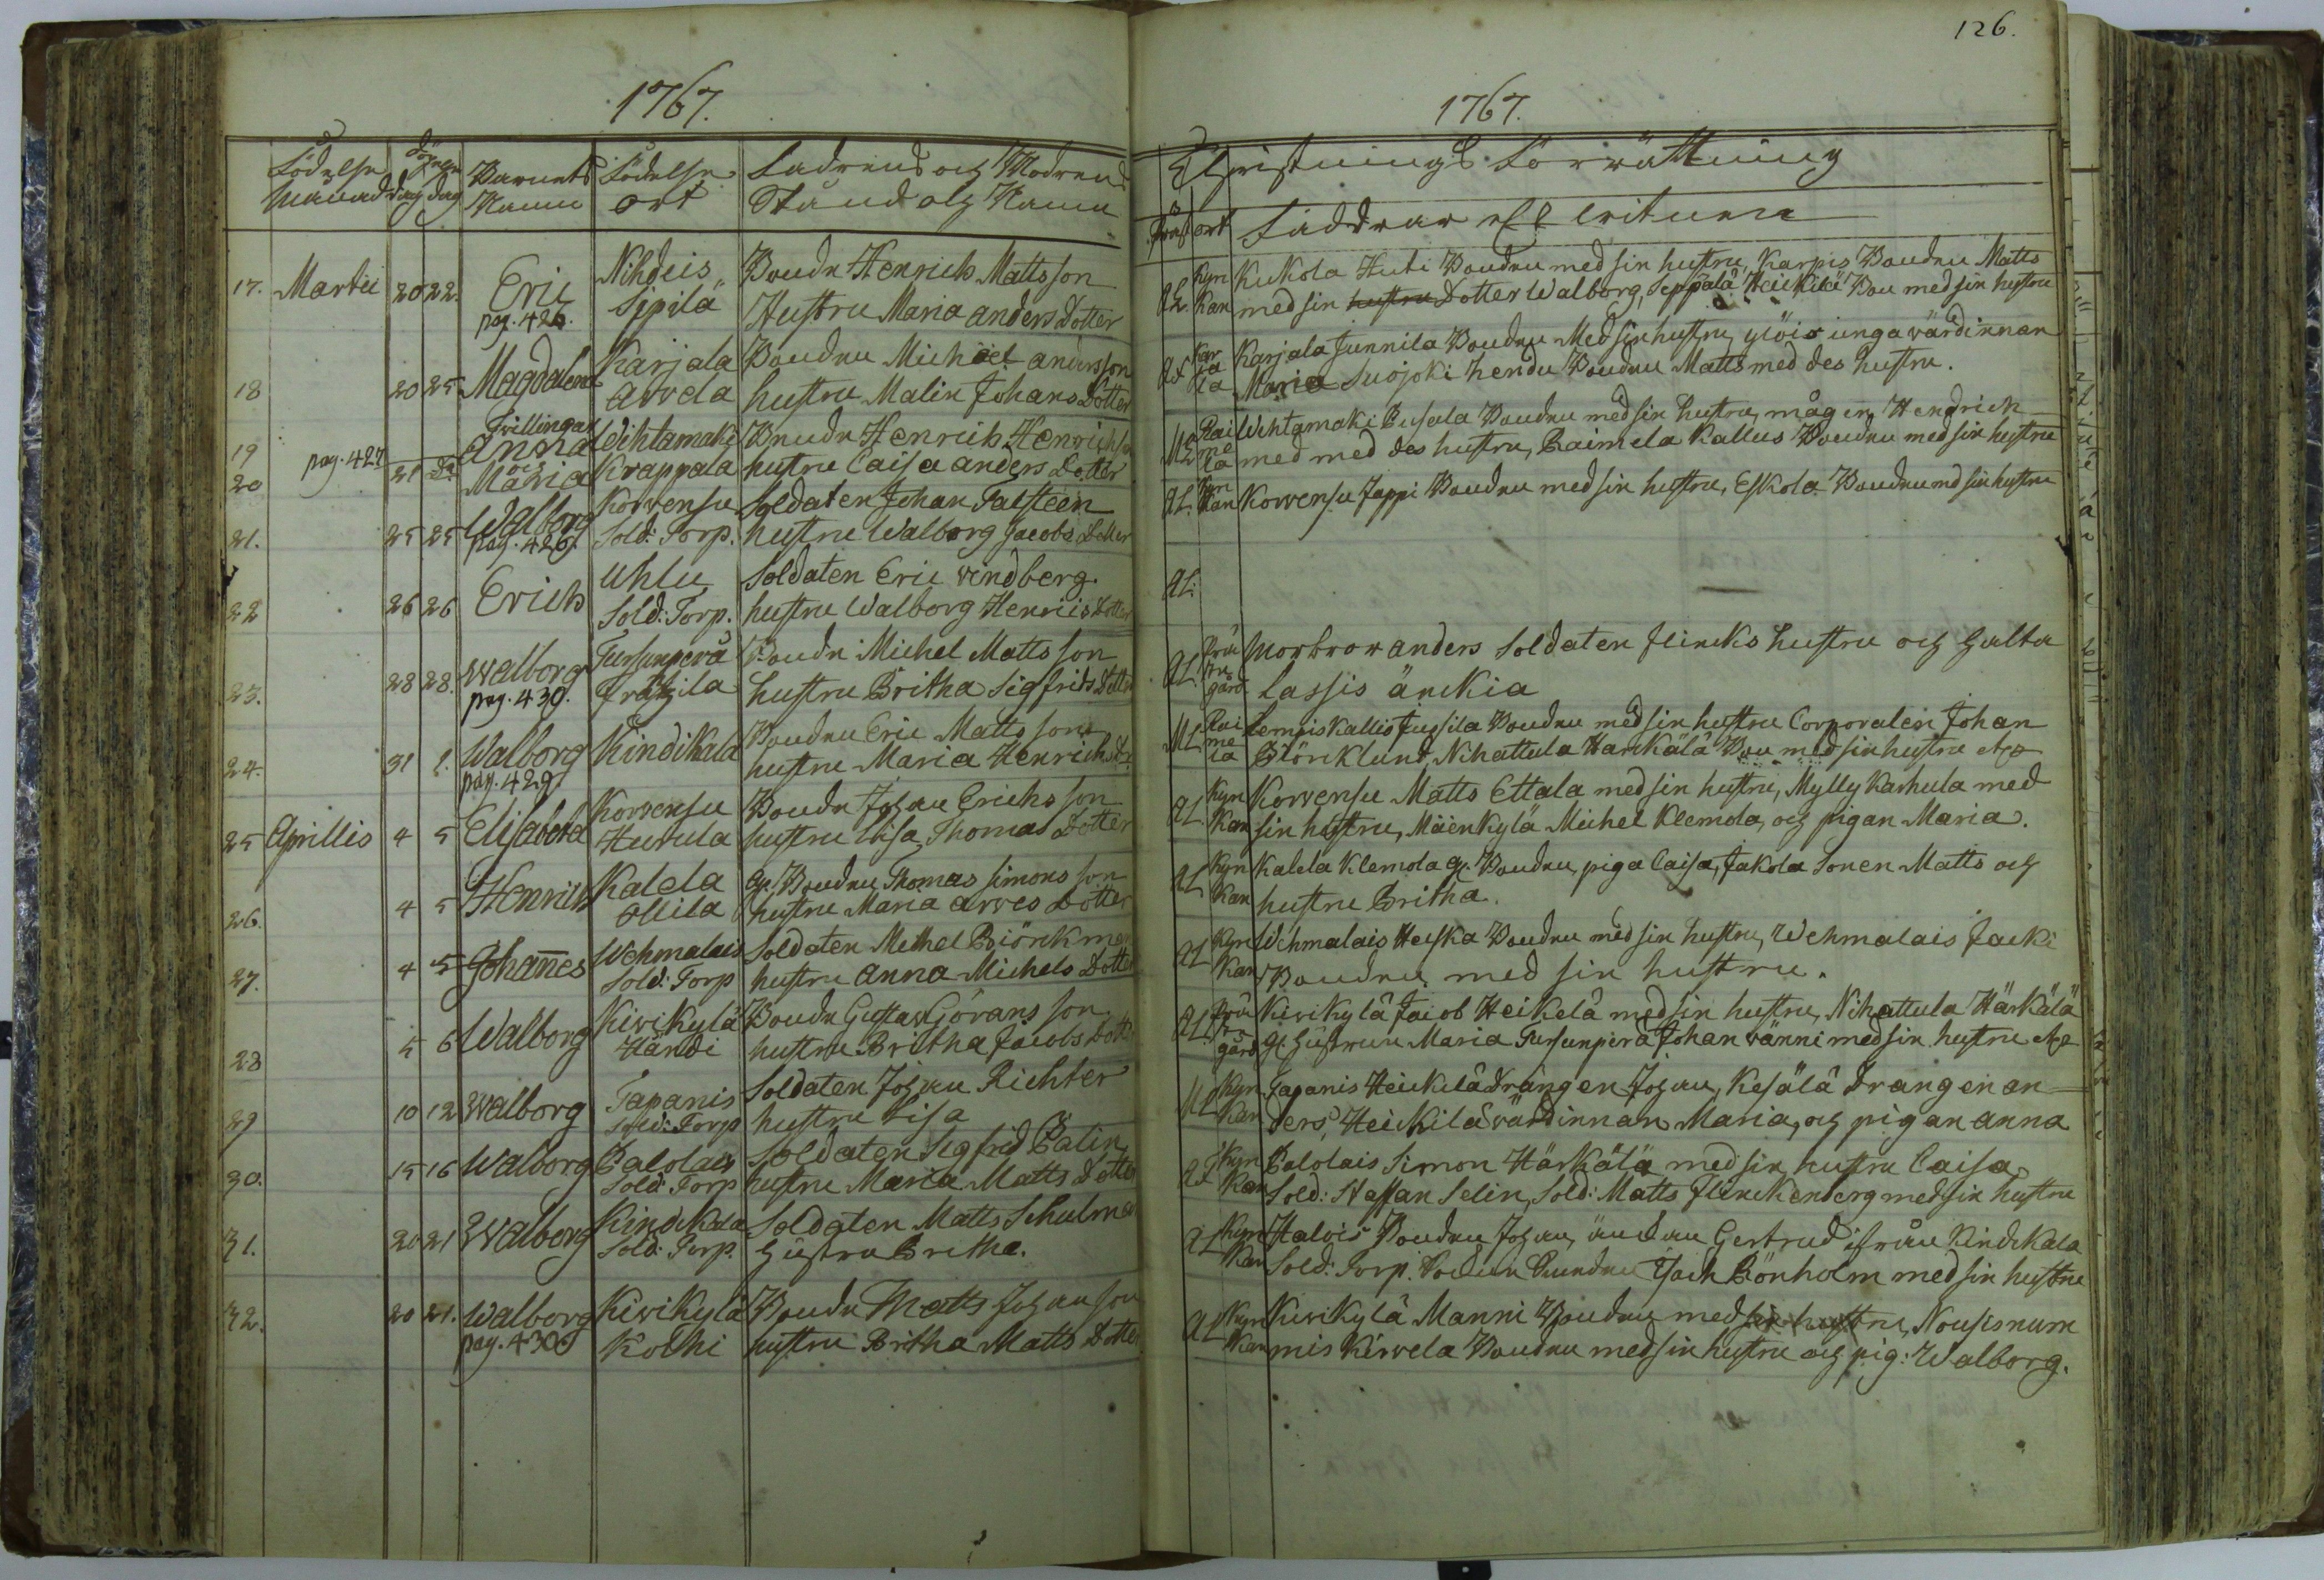 1767.
Födelse Månad dag
döpelse dag
Barnets Namn
Födelse ort
Fadrens och Modrens Stånd och Namn
17. Martii 20 22. Eric Nihdeis Bonden Henrich Mattsson
pag. 426. Sipilä Hustru Maria anders dotter
18 20 25 Magdalena Karjala Bonden Michäel andersson
arvela hustru Malin Johans Dotter
Tvillingar
19 Anna Wihtamaki Bonden Henrich Henrichsson
20 pag. 427 21 och Maria Krappala hustru Caisa anders Dotter
21. 25 25 Walborg Korvensu Soldaten Johan Falsteen
pag. 426. Sold: Torp. hustru Walborg Jacobs Dotter
22 26 26 Erich Uhlu Soldaten Eric vindberg
Sold: Torp. hustru Walborg Henrics Dotter
23. 28 28. Walborg Tursunperä Bonden Michel Mattsson
pag. 430. hustru Britha Sigfrids Dotter
24. 31 1. Walborg Kindikala Bonden Eric Mattsson
pag. 429. hustru Maria Henrichs Dr
25 Aprillis 4 5 Elisabeta Korvensu Bonden Johan Erichsson
Heurula hustru Lisa Thomas Dotter
26. 4 5 Henrich Kalela Bonden Thomas Simonsson
Ollila hustru Maria arves Dotter
27. 4 5 Johan̄es Wehmalais Soldaten Michel Biörckman
Sold: Torp hustru anna Michels Dotter
28 5 6 Walborg Kivikylä Bonden Gustav Göransson
Händi hustru Britha Jacobs Dotter
29 10 12 Walborg Tapanis Soldaten Johan Richter
Sold: Torp hustru Lisa
30. 15 16 Walborg Palolais Soldaten Sigfrid Palin
Sold: Torp hustru Maria Matts Dotter
31. 20 21 Walborg Kindikala Soldaten Matts Schulman
Sold: Torp. hustru Britha.
32. 20 21. Walborg Kivikylä Bonden Matts Johansson
pag. 430 Kolhi hustru Britha Matts Dotter
126.
1767.
Christnings Förrättning
Präst ort Faddrar
AL. Kyrkan Kukola Huti Bonden med sin hustru, Karpis Bonden Matts
med sin hustru Dotter Walborg, Seppälä Heickilä Bon med sin hustru
Karjala Karjala Junnila Bonden Med sin hustru, ylöis unga värdinnan
Maria Suojoki hendu Bonden Matts med des hustru.
Raimela Wehtamaki Bonden med sin hustru, mågen Hendrich
med med des hustru, Raimela Kallus Bonden med sin hustru
AL. Kyrkan Korvensu Jappi Bonden med sin hustru, Eskola Bonden med sin hustru
AL.
AL. Morbror anders Soldaten flincks hustru och
Lassis änckia
ML Raimela Lempis Kallis Jussila Bonden med sin hustru Corporalen Johan
Biörcklund, Nihattula Harkälä Bon med sin hustru
AL Kyrkan Korvensu Matts Ettala med sin hustru, Mylly Karhula med
sin hustru, Mäenkylä Michel Klemola, och pigan Maria.
AL Kyrkan Kalela Klemola Bonden, piga Caisa, Jakola Sonen Matts och
hustru Britha.
AL Kyrkan Wehmalais Heiska Bonden med sin hustru, Wehmalais Jacki
Bonden med sin hustru.
AL Kivikylä Jacob Heikelä med sin hustru, Nihattula Härkälä
hustrun Maria Tursunperä Johan vänni med sin hustru
ML Kyrkan Tapanis Heickilä drängen Johan, Kesälä Drängen an-
ders, Heickilä värdinnan Maria, och pigan anna
AL Kyrkan Palolais Simon Härkälä med sin hustru Caisa
Sold: Staffan Selin, Sold: Matts Flinckenberg med sin hustru
AL Kyrkan Halois Bonden Johan, änckan Gertrud ifrån Kindikala
Sold: Torp. Isach Bönholm med sin hustru
AL Kyrkan Kivikylä Manni Bonden med sin hustru, Nousisnum
mis Kirvela Bonden med sin hustru och pig: Walborg.